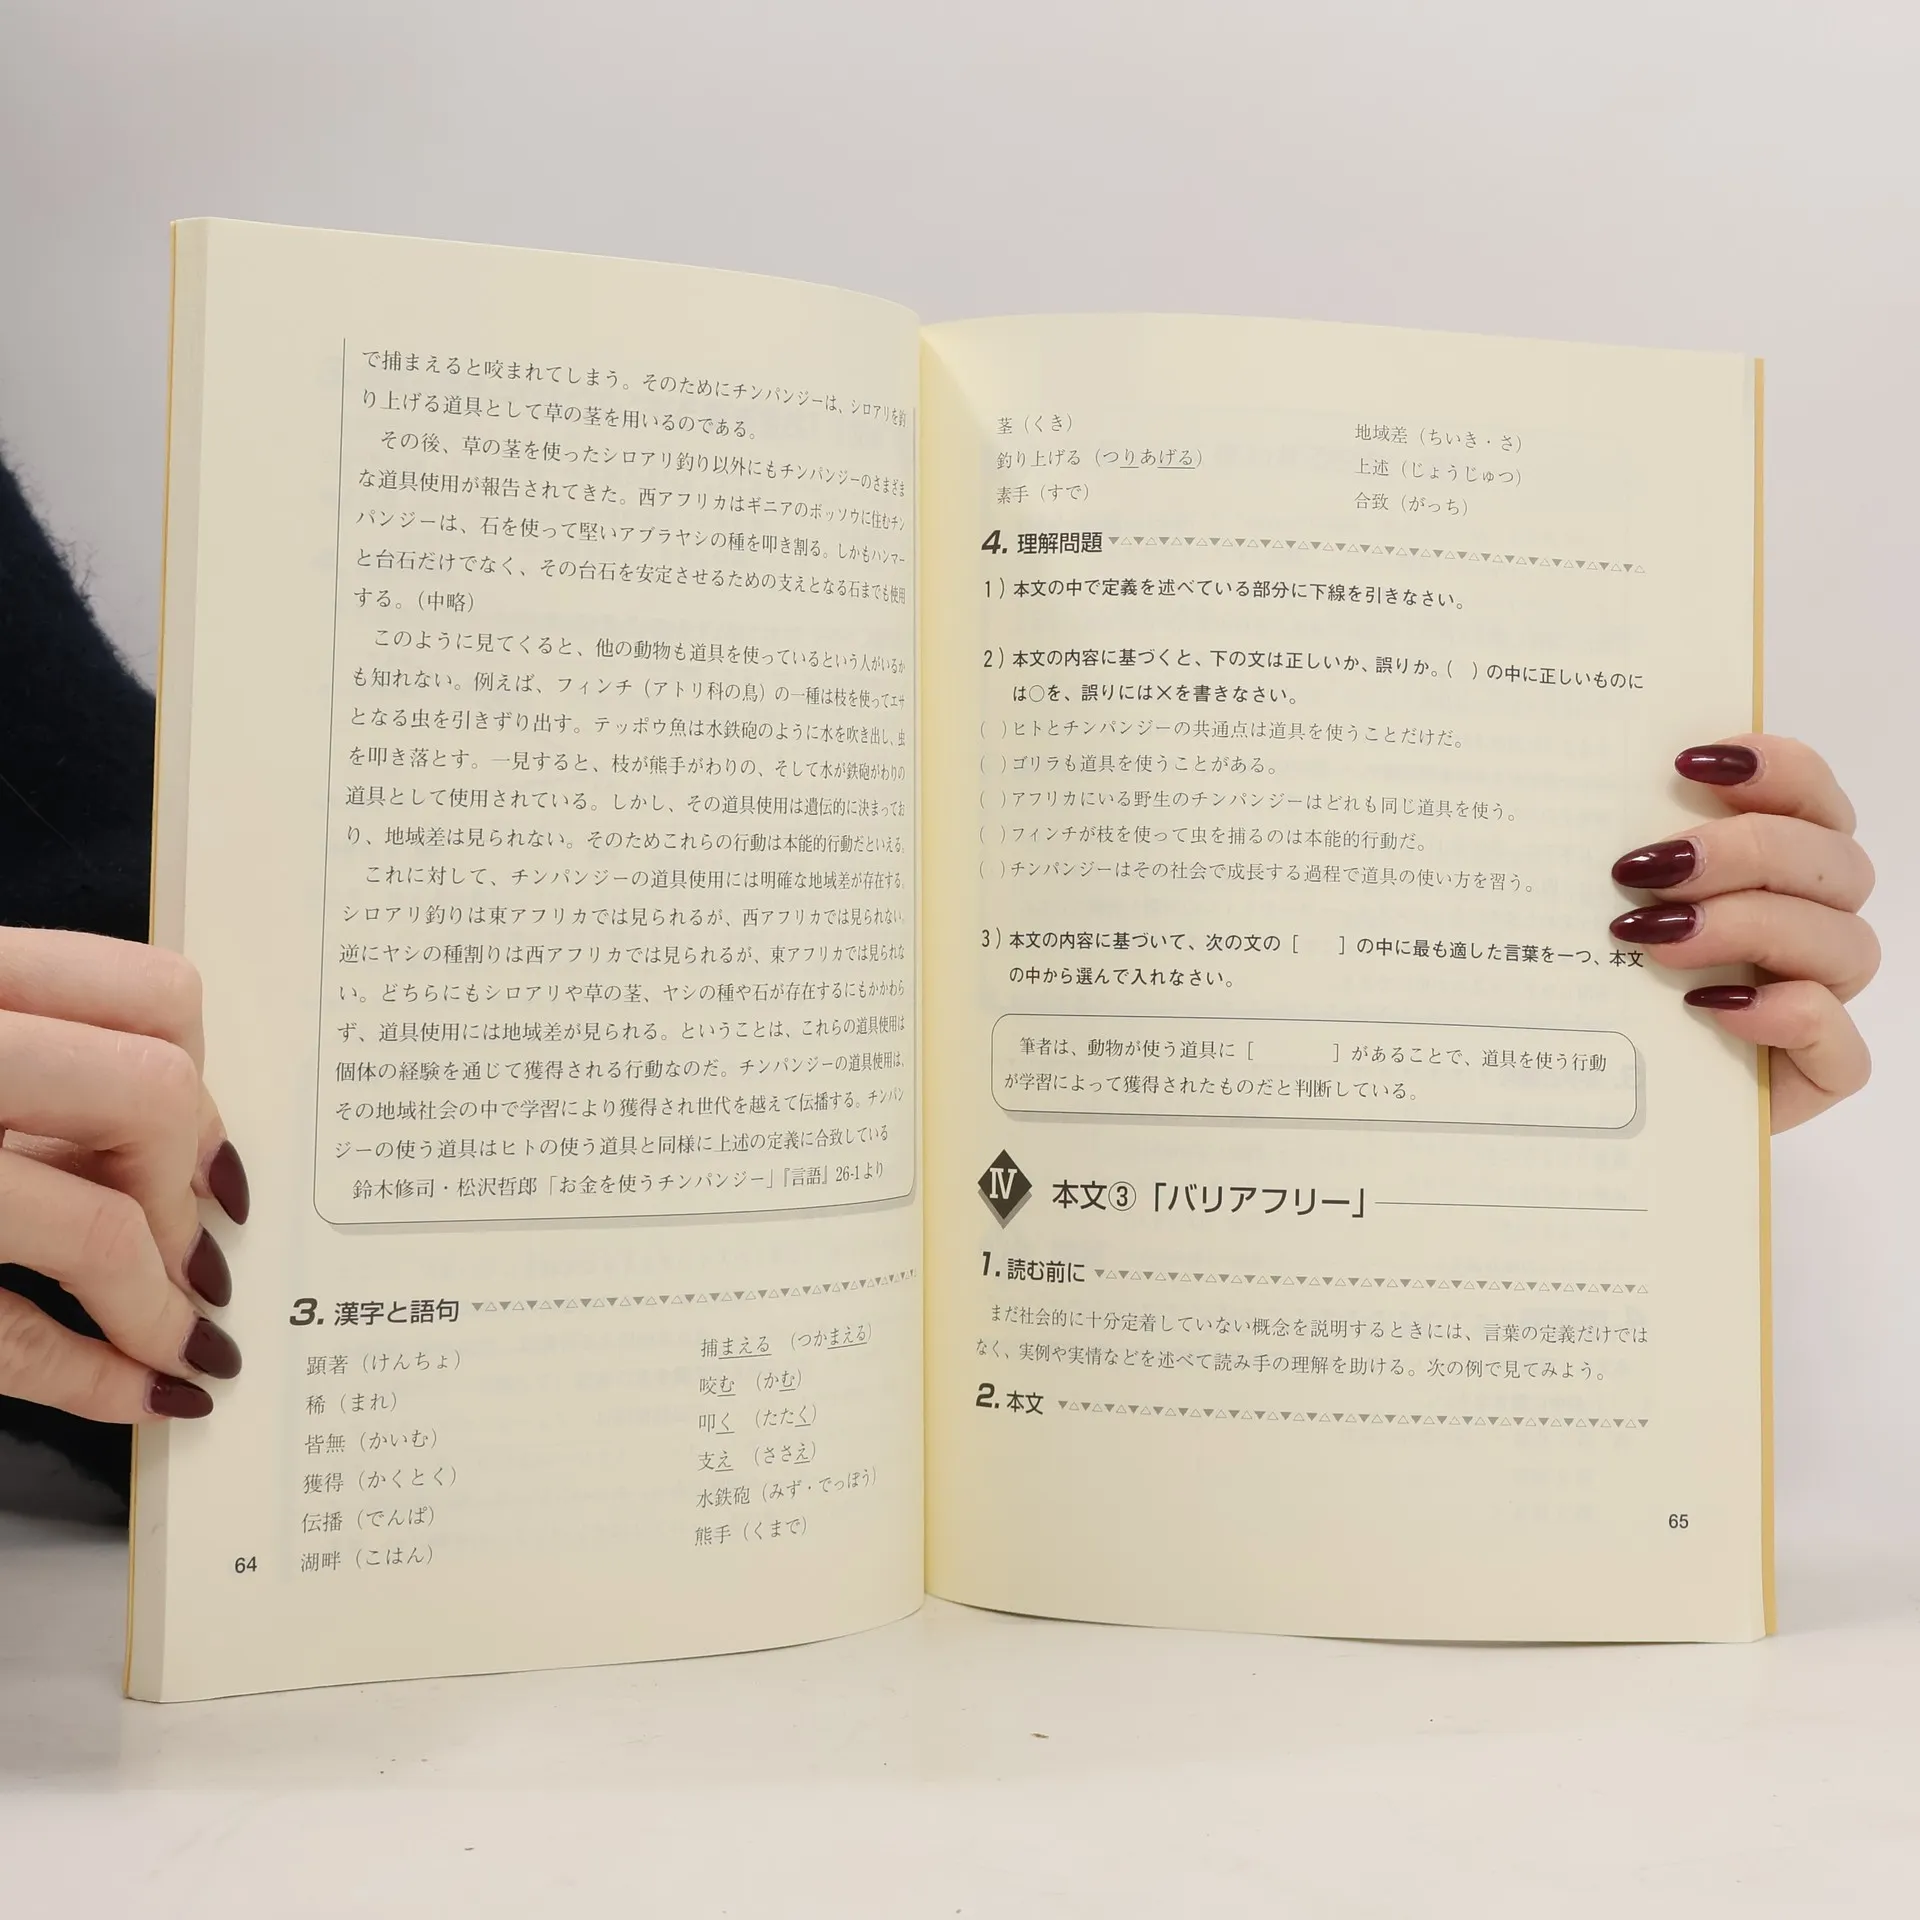 で捕まえると咬まれてしまう。そのためにチンパンジーは、シロアリを釣
り上げる道具として草の茎を用いるのである。
その後、草の茎を使ったシロアリ釣り以外にもチンパンジーのさまざま
な道具使用が報告されてきた。西アフリカはギニアのボッソウに住むチン
パンジーは、石を使って堅いアブラヤシの種を叩き割る。しかもハンマー
と台石だけでなく、その台石を安定させるための支えとなる石までも使用
する。（中略）
このように見てくると、他の動物も道具を使っているという人がいるか
も知れない。例えば、フィンチ（アトリ科の鳥）の一種は枝を使ってエサ
となる虫を引きずり出す。テッポウ魚は水鉄砲のように水を吹き出し、虫
を叩き落とす。一見すると、枝が熊手がわりの、そして水が鉄砲がわりの
道具として使用されている。しかし、その道具使用は遺伝的に決まってお
り、地域差は見られない。そのためこれらの行動は本能的行動だといえる。
これに対して、チンパンジーの道具使用には明確な地域差が存在する。
シロアリ釣りは東アフリカでは見られるが、西アフリカでは見られない。
逆にヤシの種割りは西アフリカでは見られるが、東アフリカでは見られな
い。どちらにもシロアリや草の茎、ヤシの種や石が存在するにもかかわら
ず、道具使用には地域差が見られる。ということは、これらの道具使用は
個体の経験を通じて獲得される行動なのだ。チンパンジーの道具使用は、
その地域社会の中で学習により獲得され世代を越えて伝播する。チンパン
ジーの使う道具はヒトの使う道具と同様に上述の定義に合致している
鈴木修司・松沢哲郎「お金を使うチンパンジー」『言語』26-1より
3. 漢字と語句
顕著（けんちょ）
稀（まれ）
皆無（かいむ）
獲得（かくとく）
伝播（でんぱ）
湖畔（こはん）
捕まえる（つかまえる）
咬む（かむ）
叩く（たたく）
支え（ささえ）
水鉄砲（みず・でっぽう）
熊手（くまで）
64
茎（くき）
釣り上げる（つりあげる）
素手（すで）
地域差（ちいき・さ）
上述（じょうじゅつ）
合致（がっち）
4. 理解問題
1）本文の中で定義を述べている部分に下線を引きなさい。
2）本文の内容に基づくと、下の文は正しいか、誤りか。（　）の中に正しいものに
は○を、誤りには×を書きなさい。
（　）ヒトとチンパンジーの共通点は道具を使うことだけだ。
（　）ゴリラも道具を使うことがある。
（　）アフリカにいる野生のチンパンジーはどれも同じ道具を使う。
（　）フィンチが枝を使って虫を捕るのは本能的行動だ。
（　）チンパンジーはその社会で成長する過程で道具の使い方を習う。
3）本文の内容に基づいて、次の文の［　　］の中に最も適した言葉を一つ、本文
の中から選んで入れなさい。
筆者は、動物が使う道具に［　　　　］があることで、道具を使う行動
が学習によって獲得されたものだと判断している。
Ⅳ 本文③「バリアフリー」
1. 読む前に
まだ社会的に十分定着していない概念を説明するときには、言葉の定義だけでは
なく、実例や実情などを述べて読み手の理解を助ける。次の例で見てみよう。
2. 本文
65